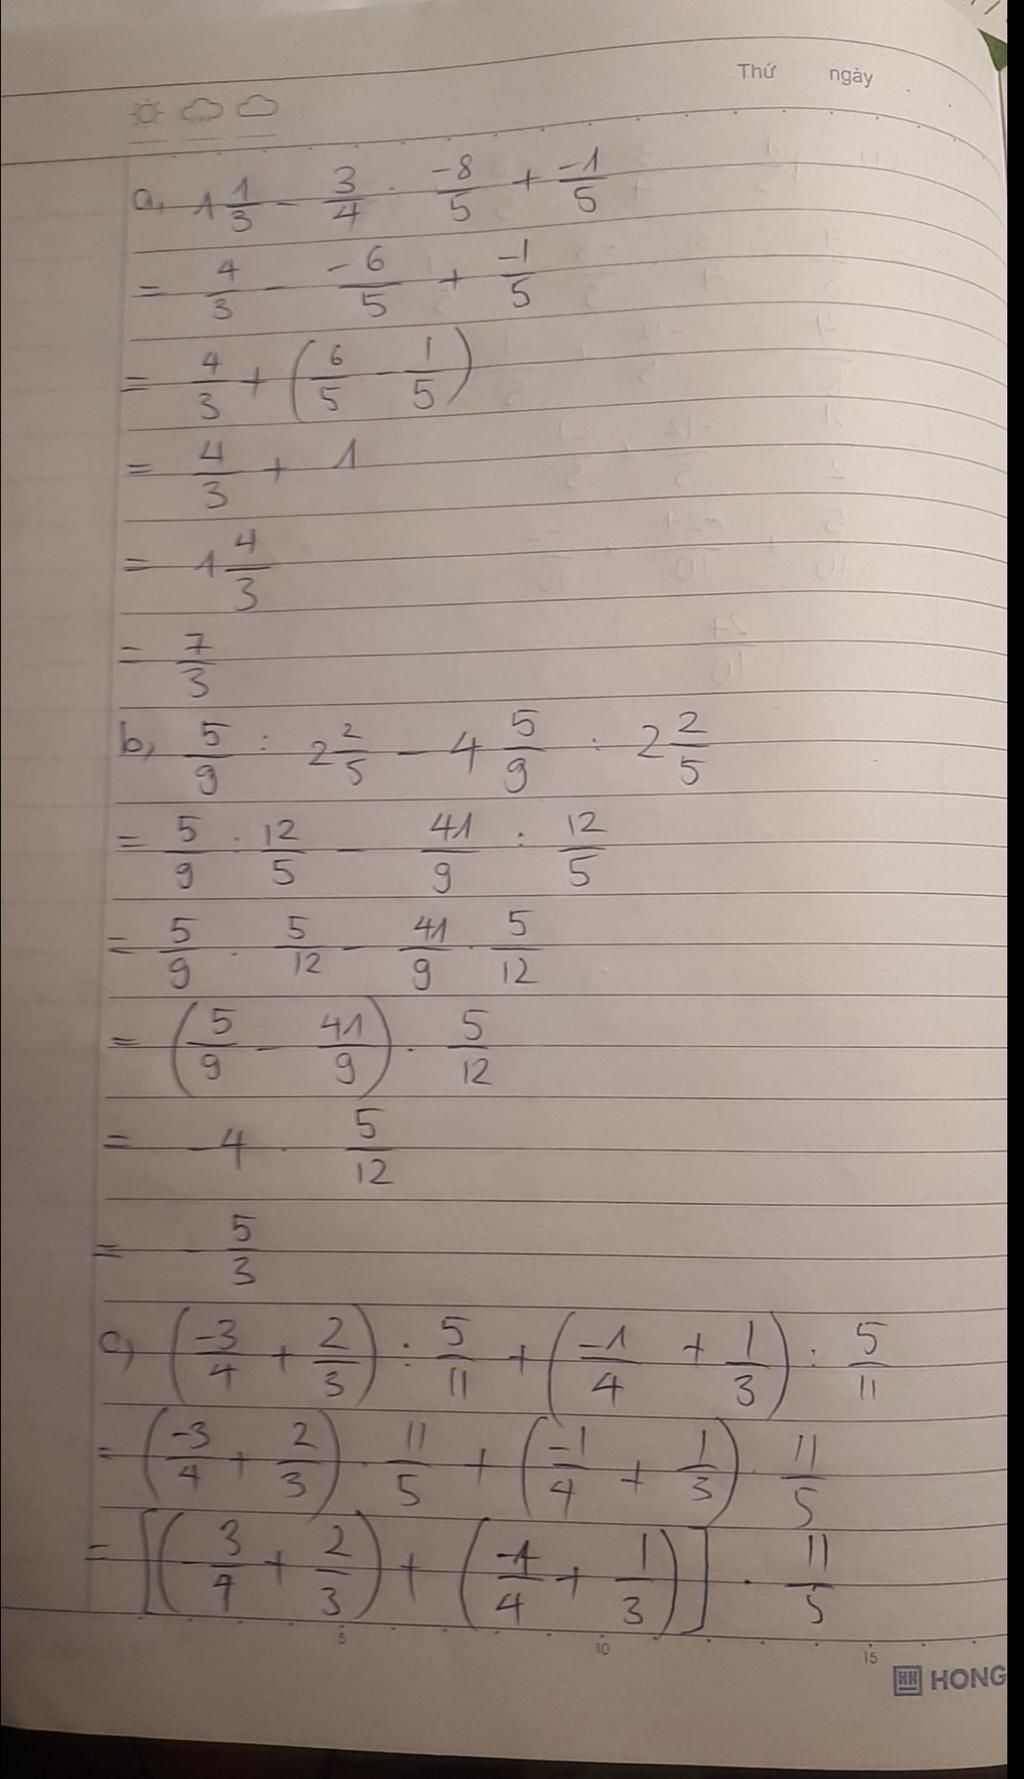 Thứ ngày
a, 1 1/3 - 3/4 . -8/5 + -1/5
= 4/3 - -6/5 + -1/5
= 4/3 + (6/5 - 1/5)
= 4/3 + 1
= 1 4/3
= 7/3
b, 5/9 : 2 2/5 - 4 5/9 : 2 2/5
= 5/9 : 12/5 - 41/9 : 12/5
= 5/9 . 5/12 - 41/9 . 5/12
= (5/9 - 41/9) . 5/12
= -4 . 5/12
= - 5/3
c, (-3/4 + 2/3) : 5/11 + (-1/4 + 1/3) : 5/11
= (-3/4 + 2/3) . 11/5 + (-1/4 + 1/3) . 11/5
= [(-3/4 + 2/3) + (-1/4 + 1/3)] . 11/5
5 10 15
HH HONG